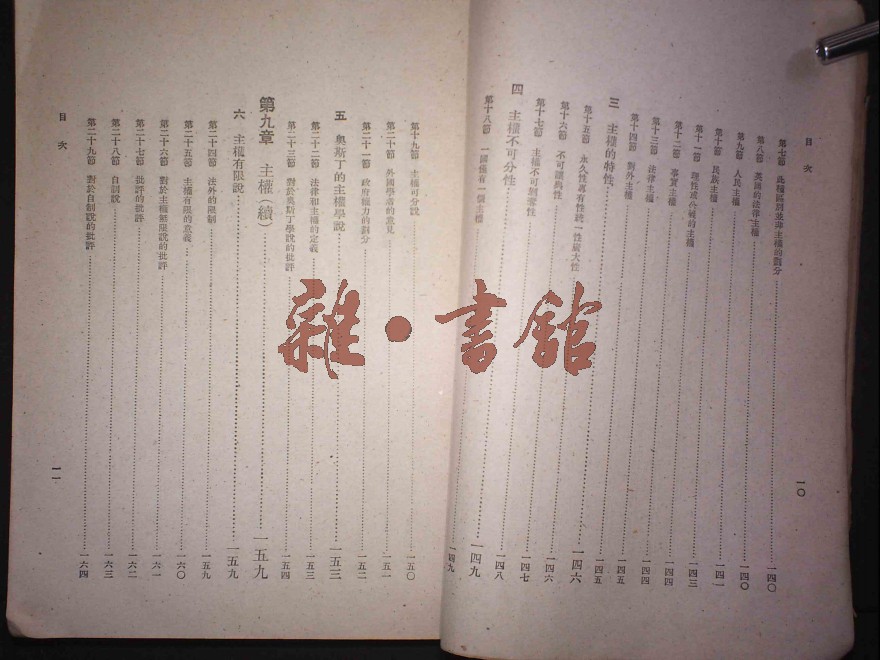 目次
第七節 此種區別並非主權的劃分 一四〇
第八節 英國的法律主權 一四〇
第九節 人民主權 一四一
第十節 民族主權 一四三
第十一節 理性或 的主權 一四四
第十二節 事實主權 一四四
第十三節 法律主權 一四五
第十四節 對外主權 一四五
三 主權的特性 一四六
第十五節 永久性專有性統一性廣大性 一四六
第十六節 不可讓與性 一四七
第十七節 主權不可剝奪性 一四八
四 主權不可分性 一四九
第十八節 一國僅有一個主權 一四九
一〇
第十九節 主權可分說 一五〇
第二十節 外國學者的意見 一五一
第二十一節 政府權力的劃分 一五二
五 奧斯丁的主權學說 一五三
第二十二節 法律和主權的定義 一五三
第二十三節 對於奧斯丁學說的批評 一五四
第九章 主權(續) 一五九
六 主權有限說 一五九
第二十四節 法外的限制 一五九
第二十五節 主權有限的意義 一六〇
第二十六節 對於主權無限說的批評 一六一
第二十七節 批評的批評 一六二
第二十八節 自制說 一六三
第二十九節 對於自制說的批評 一六四
目次
一一
雜·書館